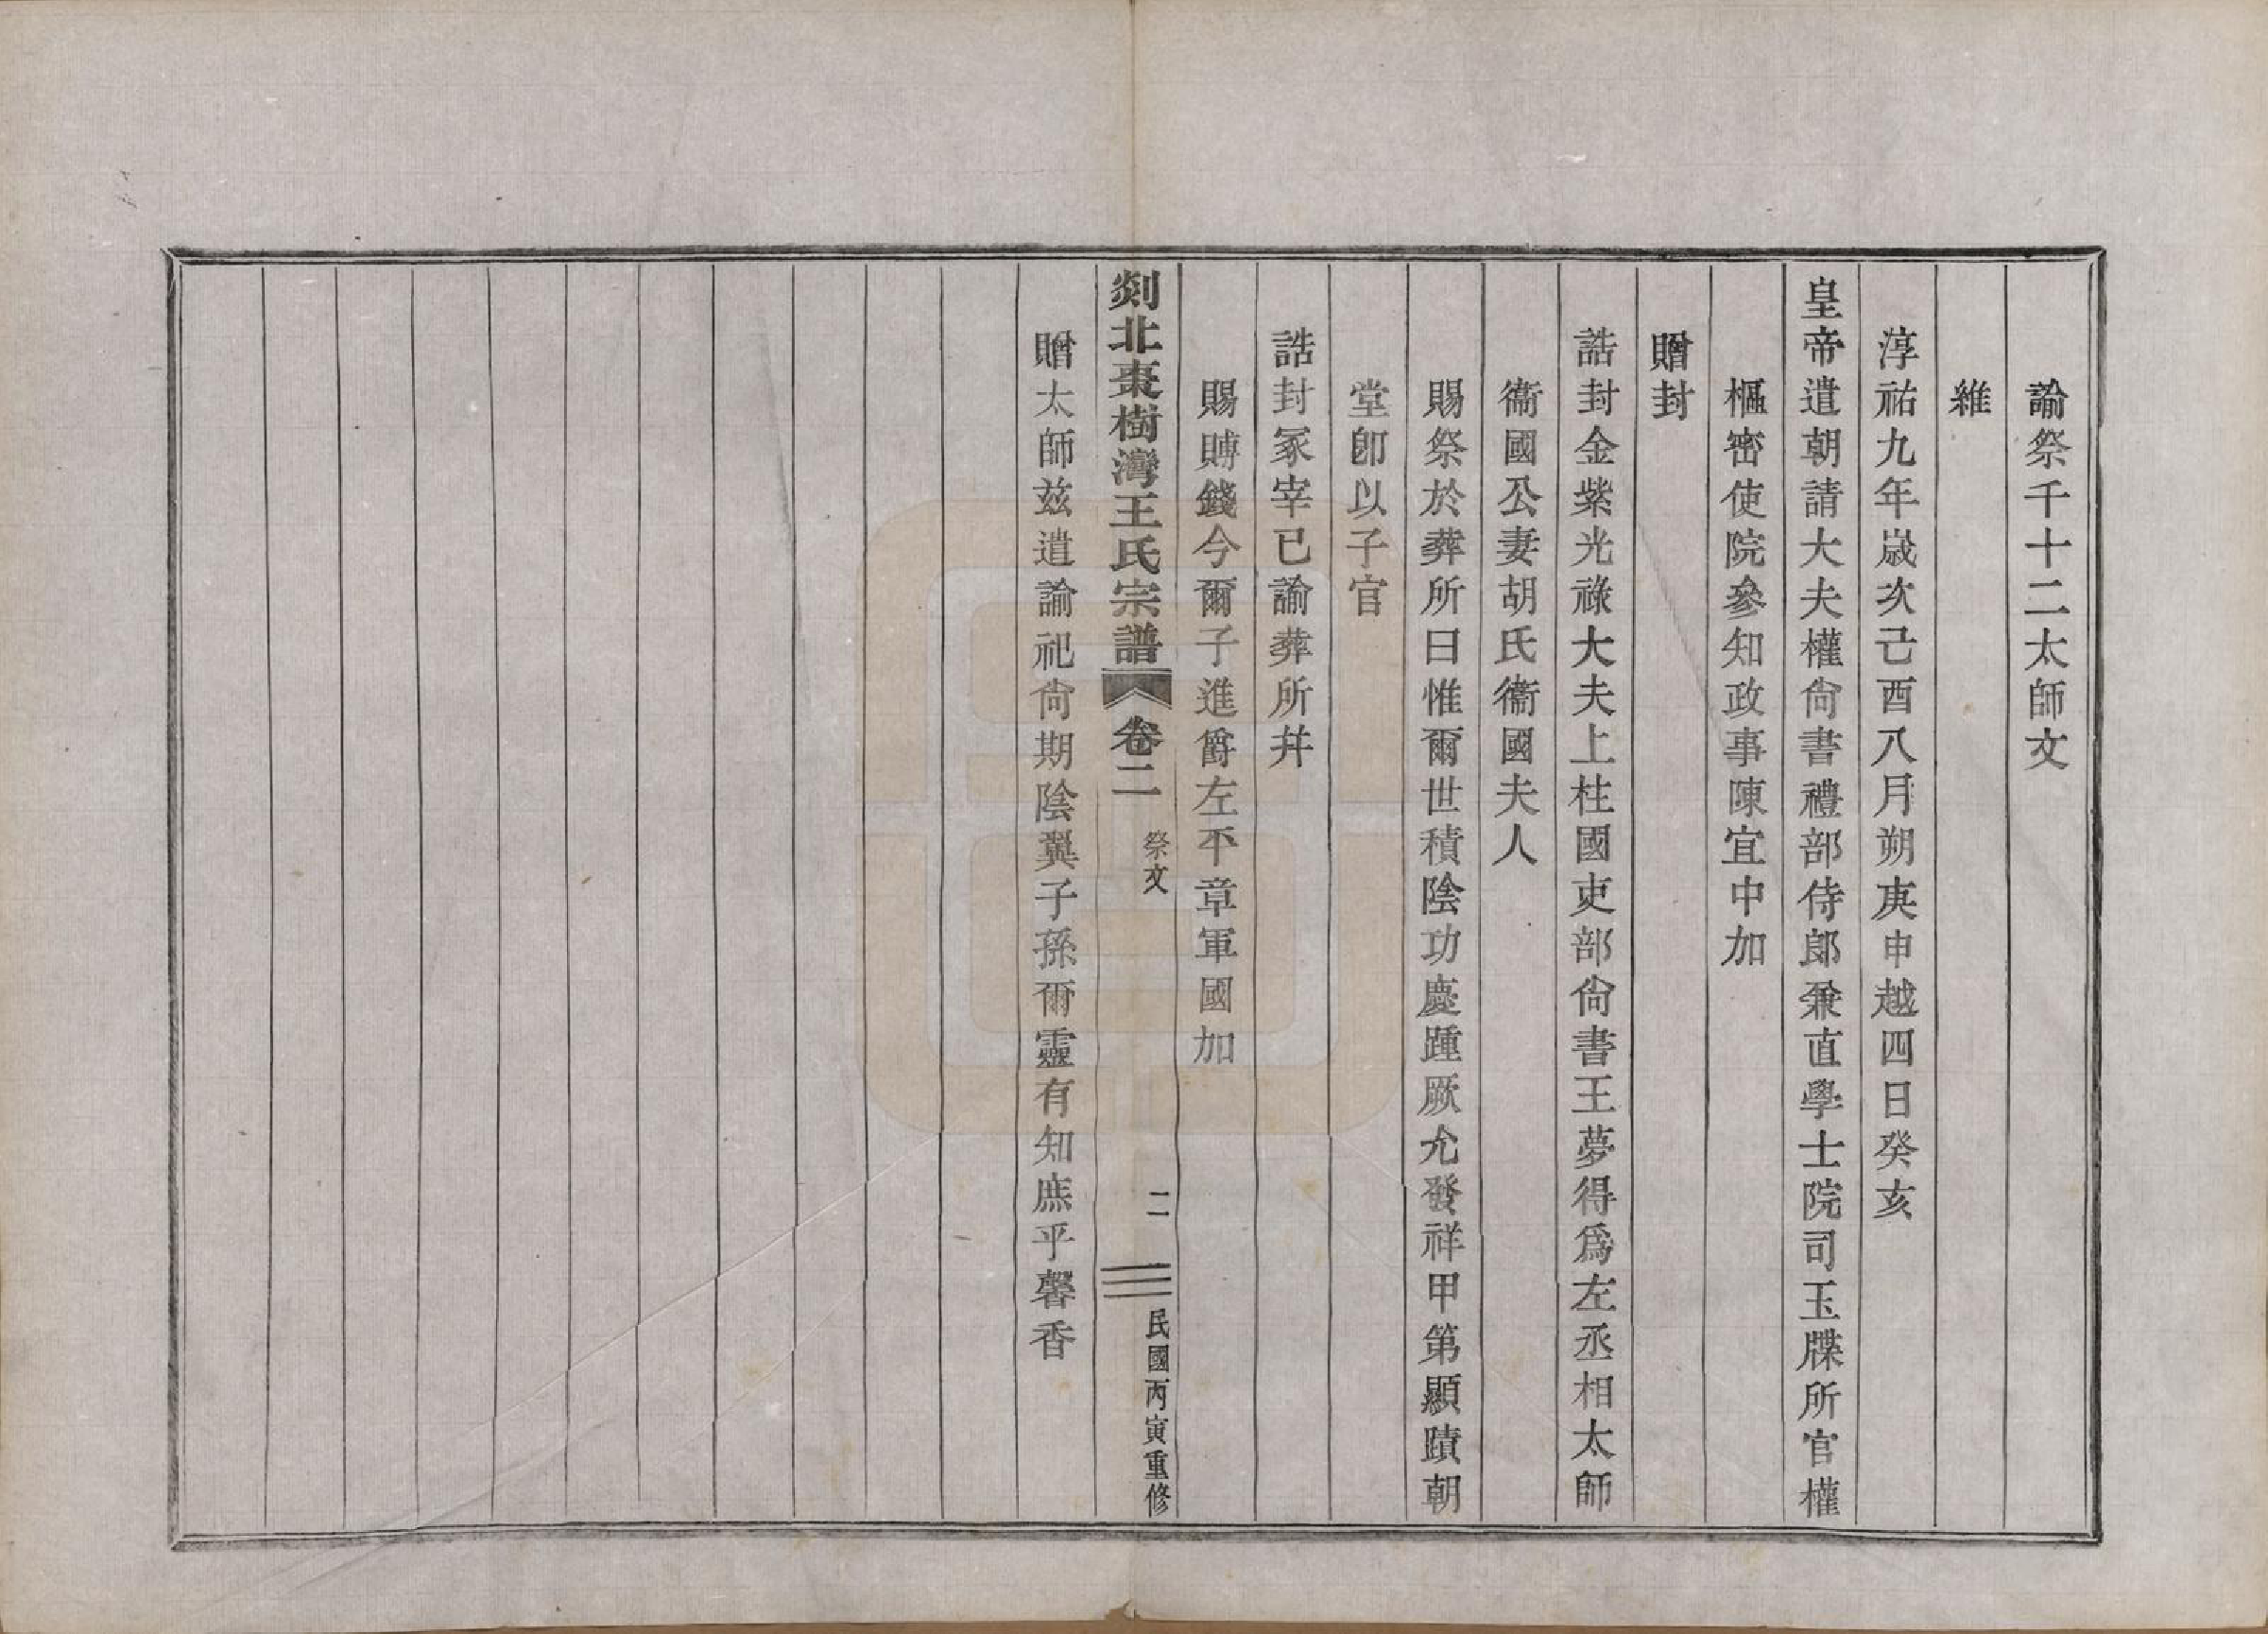 諭祭千十二太師文
維
淳祐九年歲次己酉八月朔庚申越四日癸亥
皇帝遣朝請大夫權尙書禮部侍郎兼直學士院司玉牒所官權
樞密使院參知政事陳宜中加
贈封
誥封金紫光祿大夫上柱國吏部尙書王夢得爲左丞相太師
衞國公妻胡氏衞國夫人
賜祭於葬所曰惟爾世積陰功慶踵厥允發祥甲第顯蹟朝
堂卽以子官
誥封冢宰已諭葬所幷
賜賻錢今爾子進爵左平章軍國加
剡北棗樹灣王氏宗譜 卷二 祭文 二 民國丙寅重修
贈太師茲遣諭祀尙期陰翼子孫爾靈有知庶乎馨香